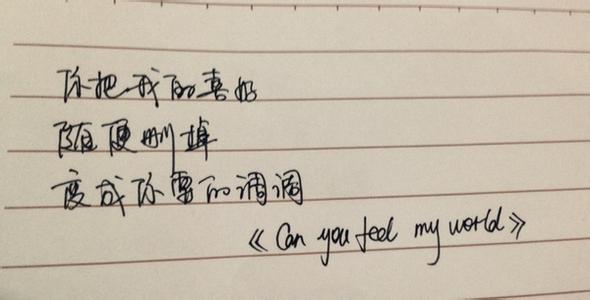 你把我的喜好
随便删掉
变成你要的调调
《Can you feel my world》